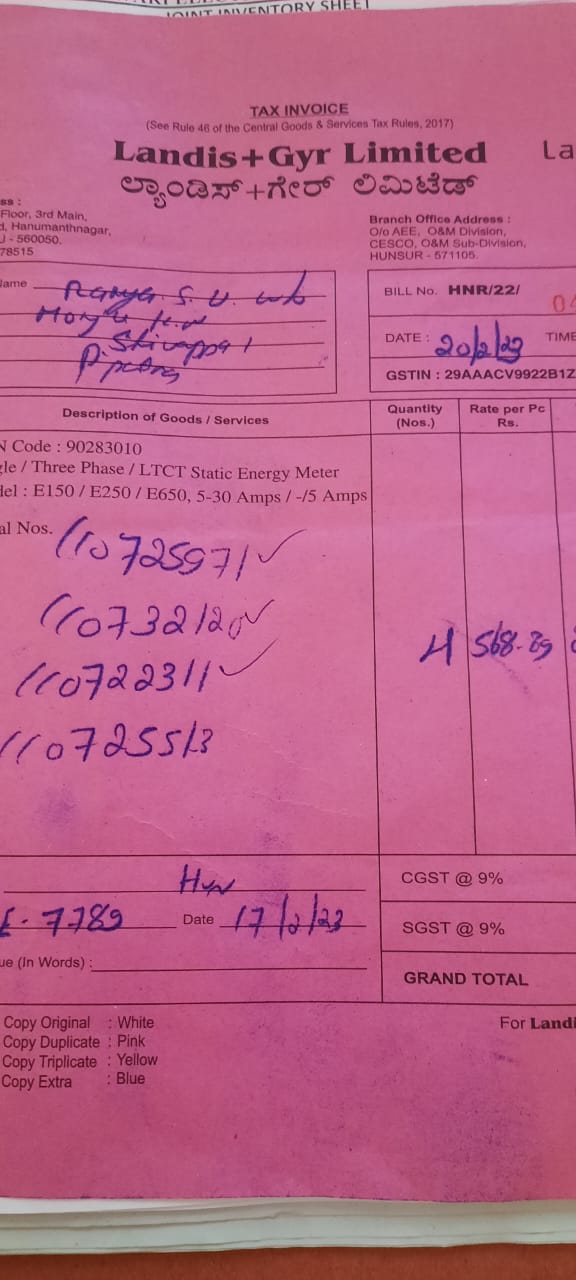 JOINT INVENTORY SHEET
TAX INVOICE
(See Rule 46 of the Central Goods & Services Tax Rules, 2017)
Landis+Gyr Limited
La
ಲ್ಯಾಂಡಿಸ್+ಗೇರ್ ಲಿಮಿಟೆಡ್
ss :
Floor, 3rd Main,
d, Hanumanthnagar,
J - 560050.
78515
Branch Office Address :
O/o AEE, O&M Division,
CESCO, O&M Sub-Division,
HUNSUR - 571105.
ame Ramya S. U. w/o
BILL No. HNR/22/ 04
DATE : 20/2/23 TIME
GSTIN : 29AAACV9922B1Z
Description of Goods / Services
Quantity (Nos.)
Rate per Pc Rs.
N Code : 90283010
gle / Three Phase / LTCT Static Energy Meter
del : E150 / E250 / E650, 5-30 Amps / -/5 Amps
al Nos.
110725971 ✓
110732120 ✓
110722311 ✓
110725513
4 568.89
Hun
CGST @ 9%
E. 7789 Date 17/2/23
SGST @ 9%
ue (In Words) :
GRAND TOTAL
Copy Original : White
Copy Duplicate : Pink
Copy Triplicate : Yellow
Copy Extra : Blue
For Landi